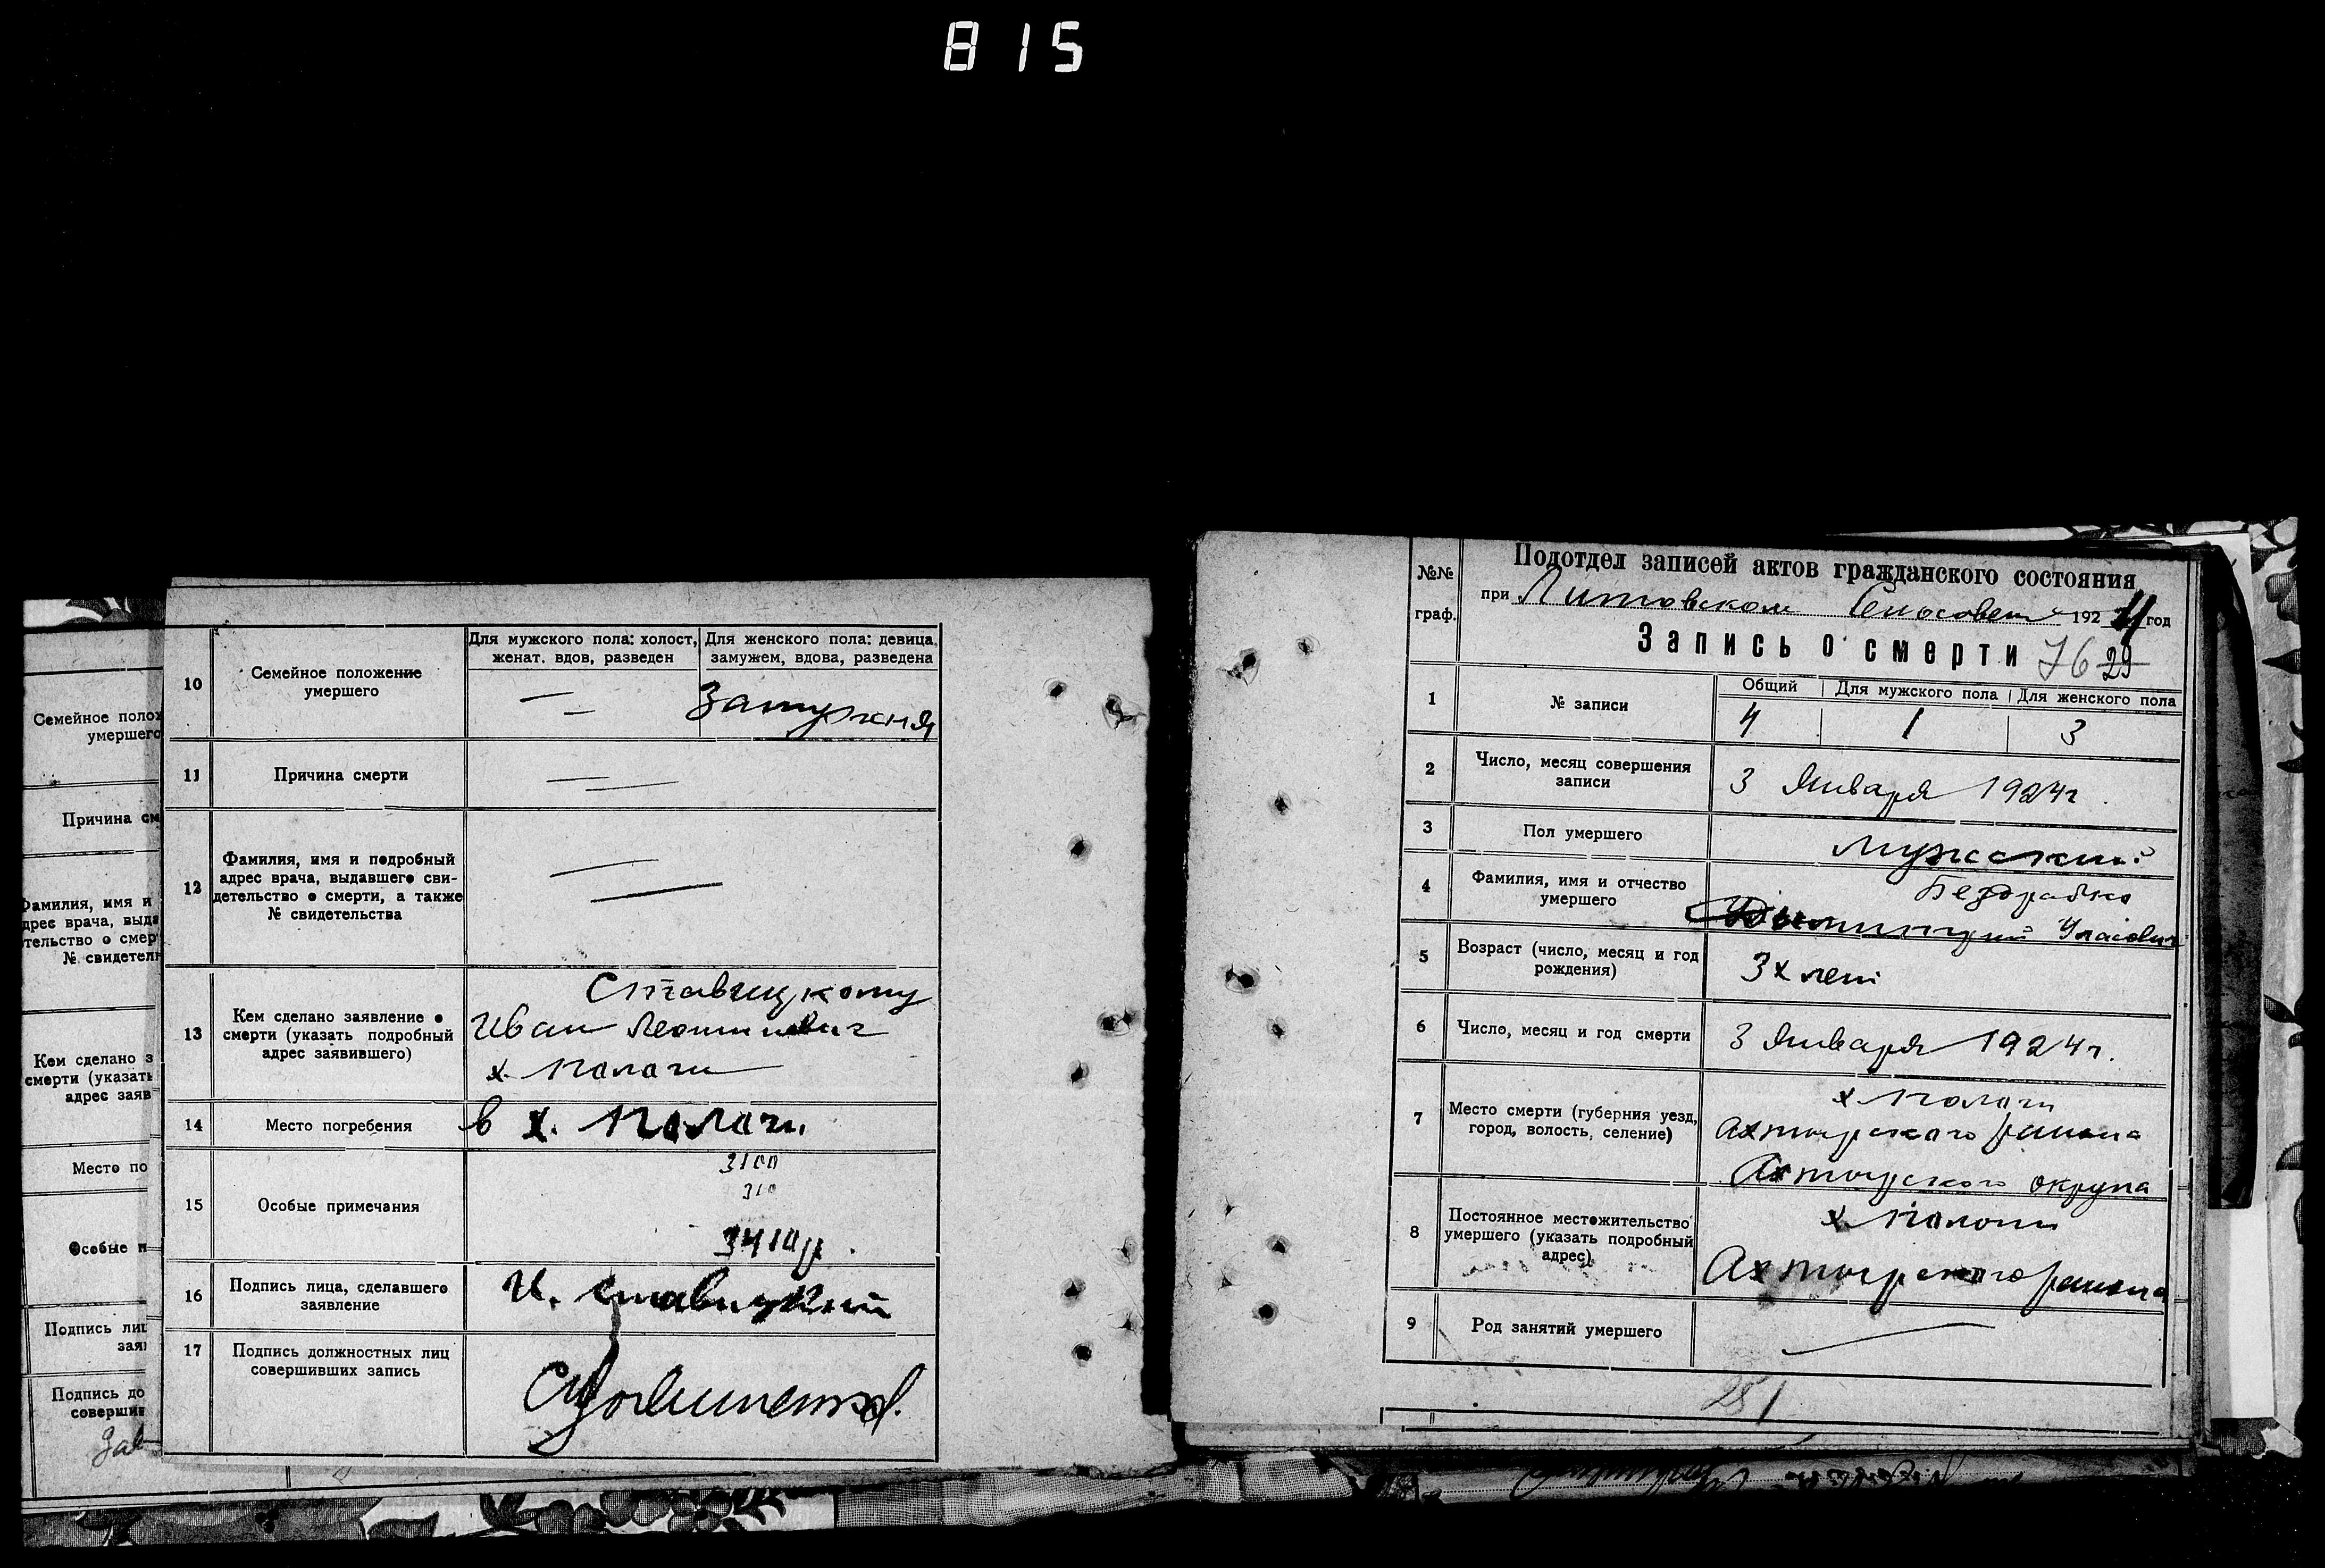 815
Семейное полож
умершего
Причина см
Фамилия, имя и
дрес врача, выда
тельство о смер
№ свидетель
Кем сделано з
смерти (указать
адрес заяв
Место по
Особые п
Подпись лиц
заяв
Подпись до
соверши
10
Семейное положение
умершего
Для мужского пола: холост,
женат. вдов, разведен
Для женского пола: девица,
замужем, вдова, разведена
Замужняя
11
Причина смерти
12
Фамилия, имя и подробный
адрес врача, выдавшего сви-
детельство о смерти, а также
№ свидетельства
13
Кем сделано заявление о
смерти (указать подробный
адрес заявившего)
Ставицкому
Иван
х.
14
Место погребения
в х.
15
Особые примечания
3100
310
3410р.
16
Подпись лица, сделавшего
заявление
И. Ставицкий
17
Подпись должностных лиц
совершивших запись
№№
граф.
Подотдел записей актов гражданского состояния
при Литовском Сельсовете 1924 год
Запись о смерти 76 29
1
№ записи
Общий
Для мужского пола
Для женского пола
4
1
3
2
Число, месяц совершения
записи
3 Января 1924г.
3
Пол умершего
мужский
4
Фамилия, имя и отчество
умершего
Уласович
5
Возраст (число, месяц и год
рождения)
3х лет
6
Число, месяц и год смерти
3 Января 1924г.
7
Место смерти (губерния уезд,
город, волость, селение)
х
Ахтырского района
Ахтырского округа
8
Постоянное местожительство
умершего (указать подробный
адрес)
х
Ахтырского района
9
Род занятий умершего
281